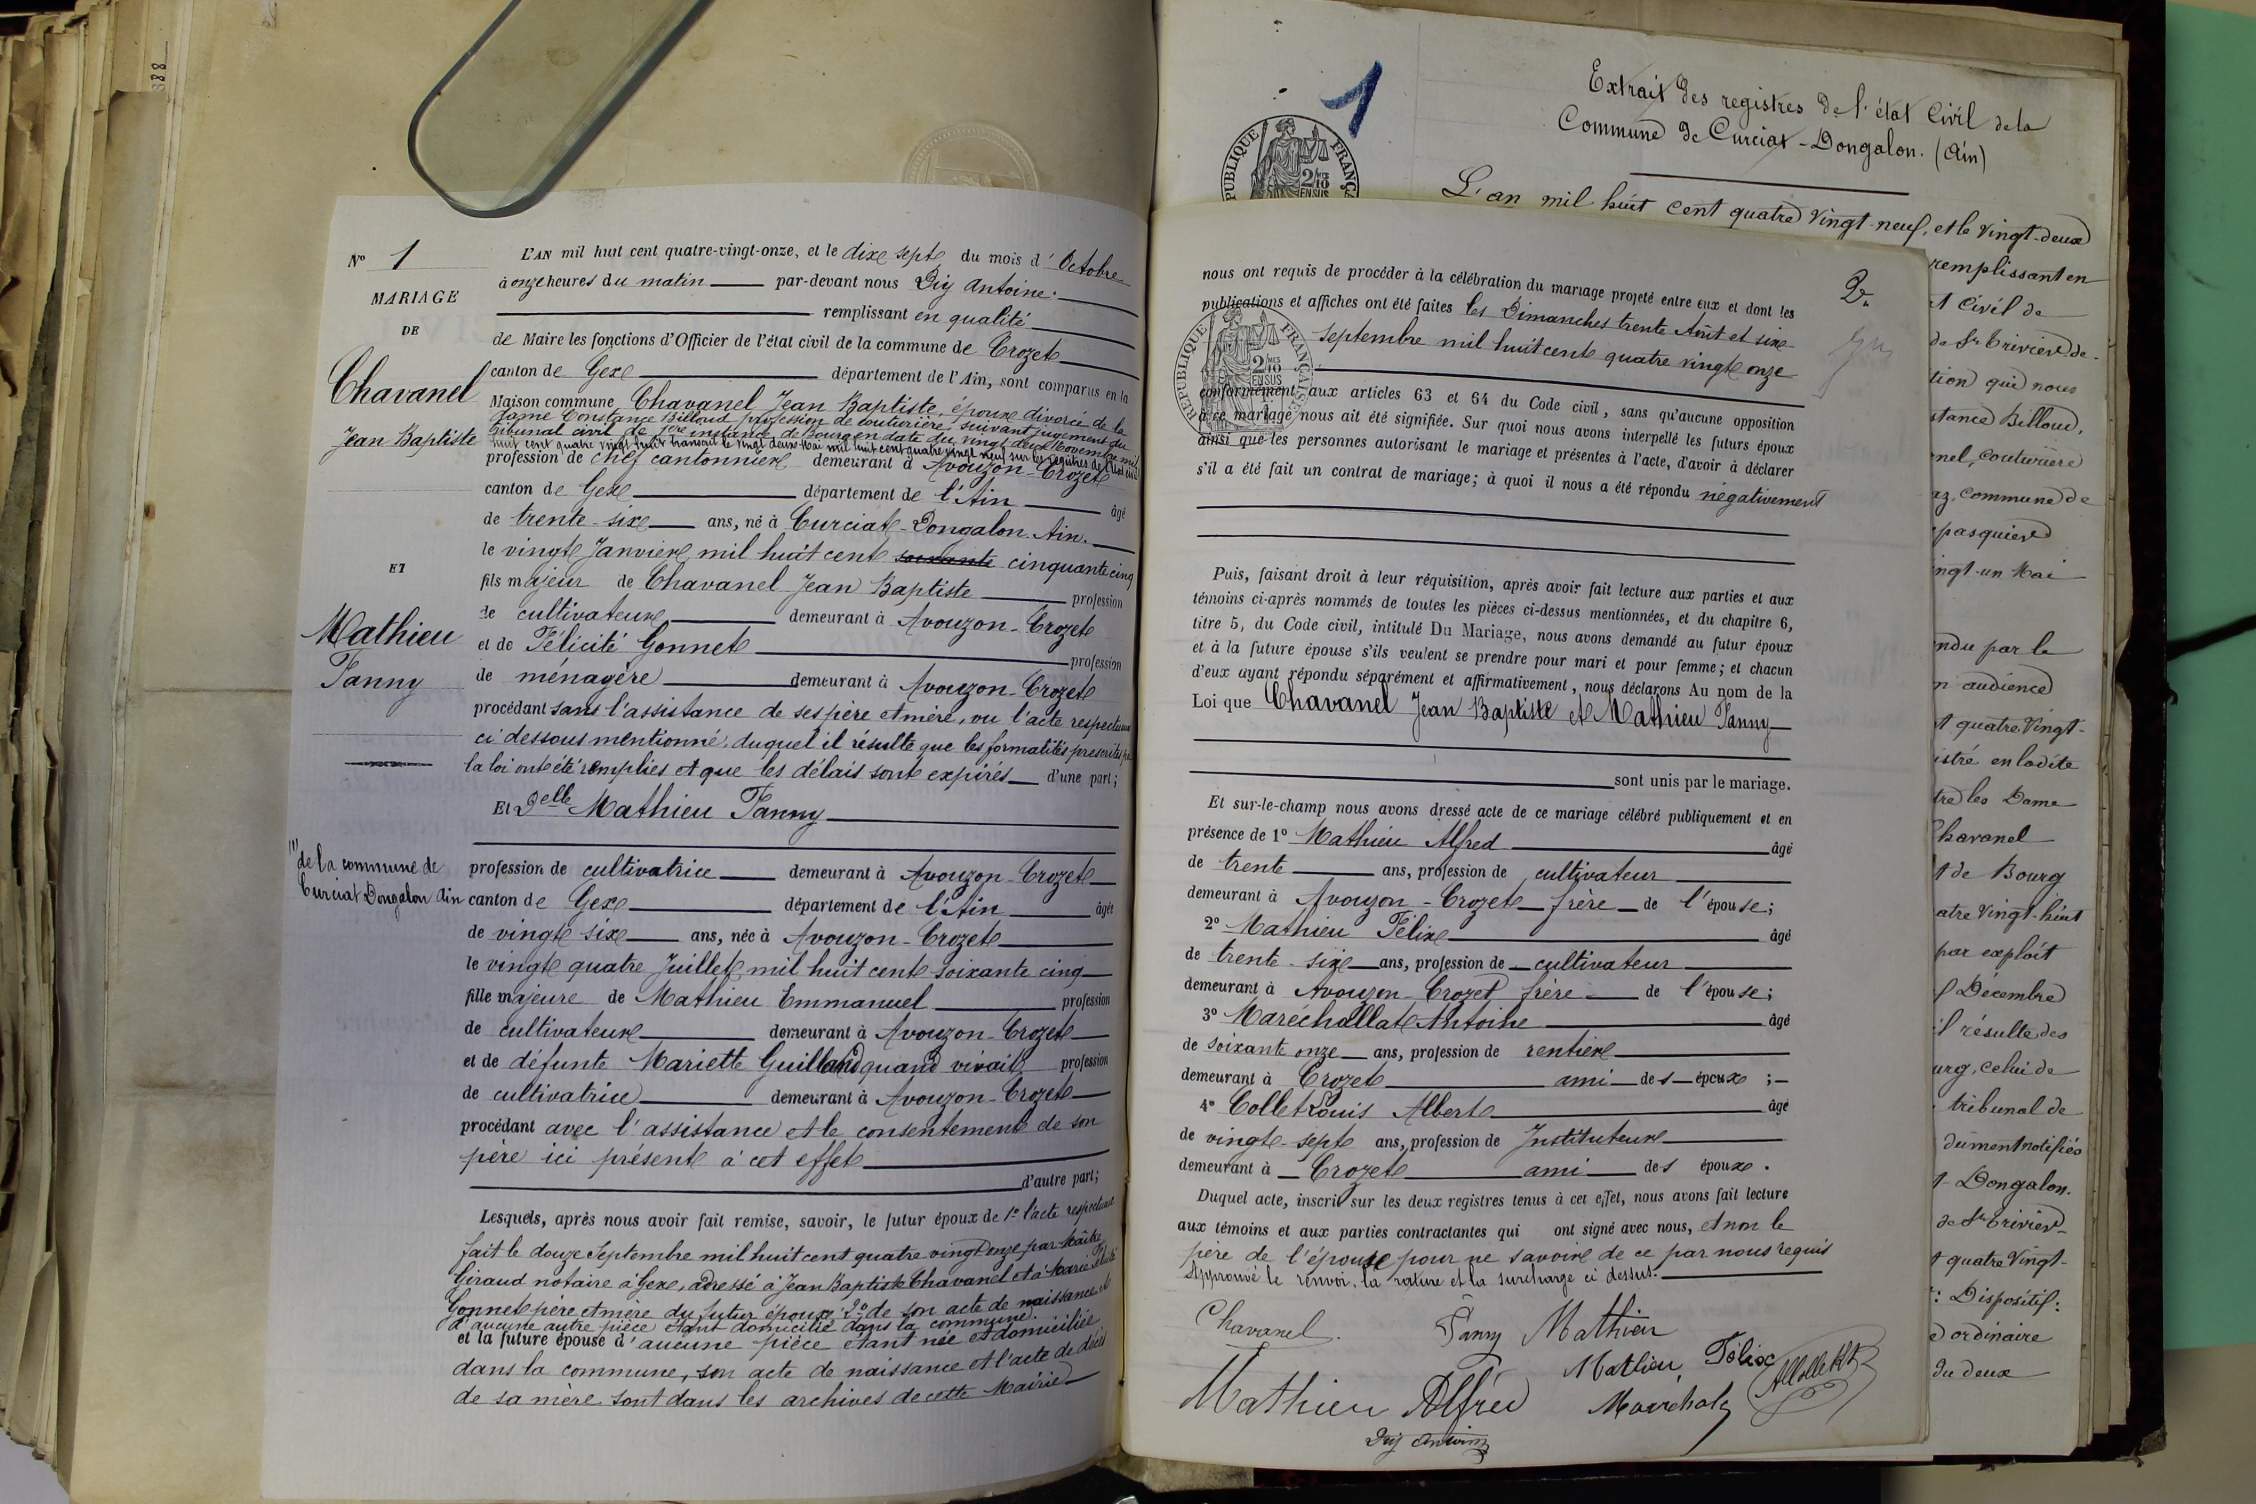 888
N° 1
MARIAGE
DE
Chavanel
Jean Baptiste
ET
Mathieu
Fanny
(1) de la commune de
Curciat Dongalon Ain
L'AN mil huit cent quatre-vingt-onze, et le dix sept du mois d'Octobre
à onze heures du matin par-devant nous Diij Antoine
remplissant en qualité
de Maire les fonctions d'Officier de l'état civil de la commune de Crozet
canton de Gex département de l'Ain, sont comparus en la
Maison commune Chavanel Jean Baptiste, époux divorcé de la
dame Constance Billoud, profession de couturière, suivant jugement du
tribunal civil de 1ère instance de Bourg en date du vingt deux Novembre mil
huit cent quatre vingt huit transcrit le vingt deux Mai mil huit cent quatre vingt neuf sur les registres de l'état civil
profession de chef cantonnier demeurant à Avouzon-Crozet
canton de Gex département de l'Ain âgé
de trente-six ans, né à Curciat-Dongalon. Ain.
le vingt Janvier mil huit cent soixante cinquante cinq
fils majeur de Chavanel Jean Baptiste profession
de cultivateur demeurant à Avouzon-Crozet
et de Félicité Gonnet profession
de ménagère demeurant à Avouzon-Crozet
procédant sans l'assistance de ses père et mère, vu l'acte respectueux
ci dessous mentionné, duquel il résulte que les formalités prescrites par
la loi ont été remplies et que les délais sont expirés d'une part;
Et Delle Mathieu Fanny
profession de cultivatrice demeurant à Avouzon-Crozet
canton de Gex département de l'Ain âgée
de vingt six ans, née à Avouzon-Crozet
le vingt quatre Juillet mil huit cent soixante cinq
fille majeure de Mathieu Emmanuel profession
de cultivateur demeurant à Avouzon-Crozet
et de défunte Mariette Guilland quand vivait profession
de cultivatrice demeurant à Avouzon-Crozet
procédant avec l'assistance et le consentement de son
père ici présent à cet effet
d'autre part;
Lesquels, après nous avoir fait remise, savoir, le futur époux de 1° l'acte respectueux
fait le douze Septembre mil huit cent quatre vingt onze par Maître
Giraud notaire à Gex, adressé à Jean Baptiste Chavanel et à Marie Félicité
Gonnet père et mère du futur époux; 2° de son acte de naissance et
d'aucune autre pièce étant domicilié dans la commune.
et la future épouse d'aucune pièce étant née et domiciliée
dans la commune, son acte de naissance et l'acte de décès
de sa mère sont dans les archives de cette Mairie
1
Extrait des registres de l'état Civil de la
Commune de Curciat-Dongalon. (Ain)
RÉPUBLIQUE FRANÇAISE
2/10 EN SUS
L'an mil huit cent quatre vingt-neuf, et le vingt-deux
2.
nous ont requis de procéder à la célébration du mariage projeté entre eux et dont les
publications et affiches ont été faites les Dimanches trente Août et six
Septembre mil huit cent quatre vingt onze
RÉPUBLIQUE FRANÇAISE
2/10 EN SUS
conformément aux articles 63 et 64 du Code civil, sans qu'aucune opposition
à ce mariage nous ait été signifiée. Sur quoi nous avons interpellé les futurs époux
ainsi que les personnes autorisant le mariage et présentes à l'acte, d'avoir à déclarer
s'il a été fait un contrat de mariage; à quoi il nous a été répondu négativement
Puis, faisant droit à leur réquisition, après avoir fait lecture aux parties et aux
témoins ci-après nommés de toutes les pièces ci-dessus mentionnées, et du chapitre 6,
titre 5, du Code civil, intitulé Du Mariage, nous avons demandé au futur époux
et à la future épouse s'ils veulent se prendre pour mari et pour femme; et chacun
d'eux ayant répondu séparément et affirmativement, nous déclarons Au nom de la
Loi que Chavanel Jean Baptiste et Mathieu Fanny
sont unis par le mariage.
Et sur-le-champ nous avons dressé acte de ce mariage célébré publiquement et en
présence de 1° Mathieu Alfred âgé
de trente ans, profession de cultivateur
demeurant à Avouzon-Crozet frère de l'épouse;
2° Mathieu Félix âgé
de trente-six ans, profession de cultivateur
demeurant à Avouzon-Crozet frère de l'épouse;
3° Maréchallat Antoine âgé
de soixante onze ans, profession de rentier
demeurant à Crozet ami des époux;
4° Collet Louis Albert âgé
de vingt-sept ans, profession de Instituteur
demeurant à Crozet ami des époux.
Duquel acte, inscrit sur les deux registres tenus à cet effet, nous avons fait lecture
aux témoins et aux parties contractantes qui ont signé avec nous, et non le
père de l'épouse pour ne savoir de ce par nous requis
Approuvé le renvoi, la rature et la surcharge ci dessus.
Chavanel.
Fanny Mathieu
Mathieu Félix
Mathieu Alfred
Diij Antoine
remplissant en
t Civil de
de St Trivier de
tion qui nous
stance Billoud,
nel, couturière
az, commune de
pasquier
ingt-un Mai
ndu par le
n audience
t quatre Vingt-
istré en ladite
tre les Dame
Chavanel
t de Bourg
atre vingt-huit
par exploit
f Décembre
il résulte des
urg, celui de
tribunal de
dument notifiés
t-Dongalon.
de St Trivier-
t quatre Vingt-
: Dispositif:
ordinaire
du deux